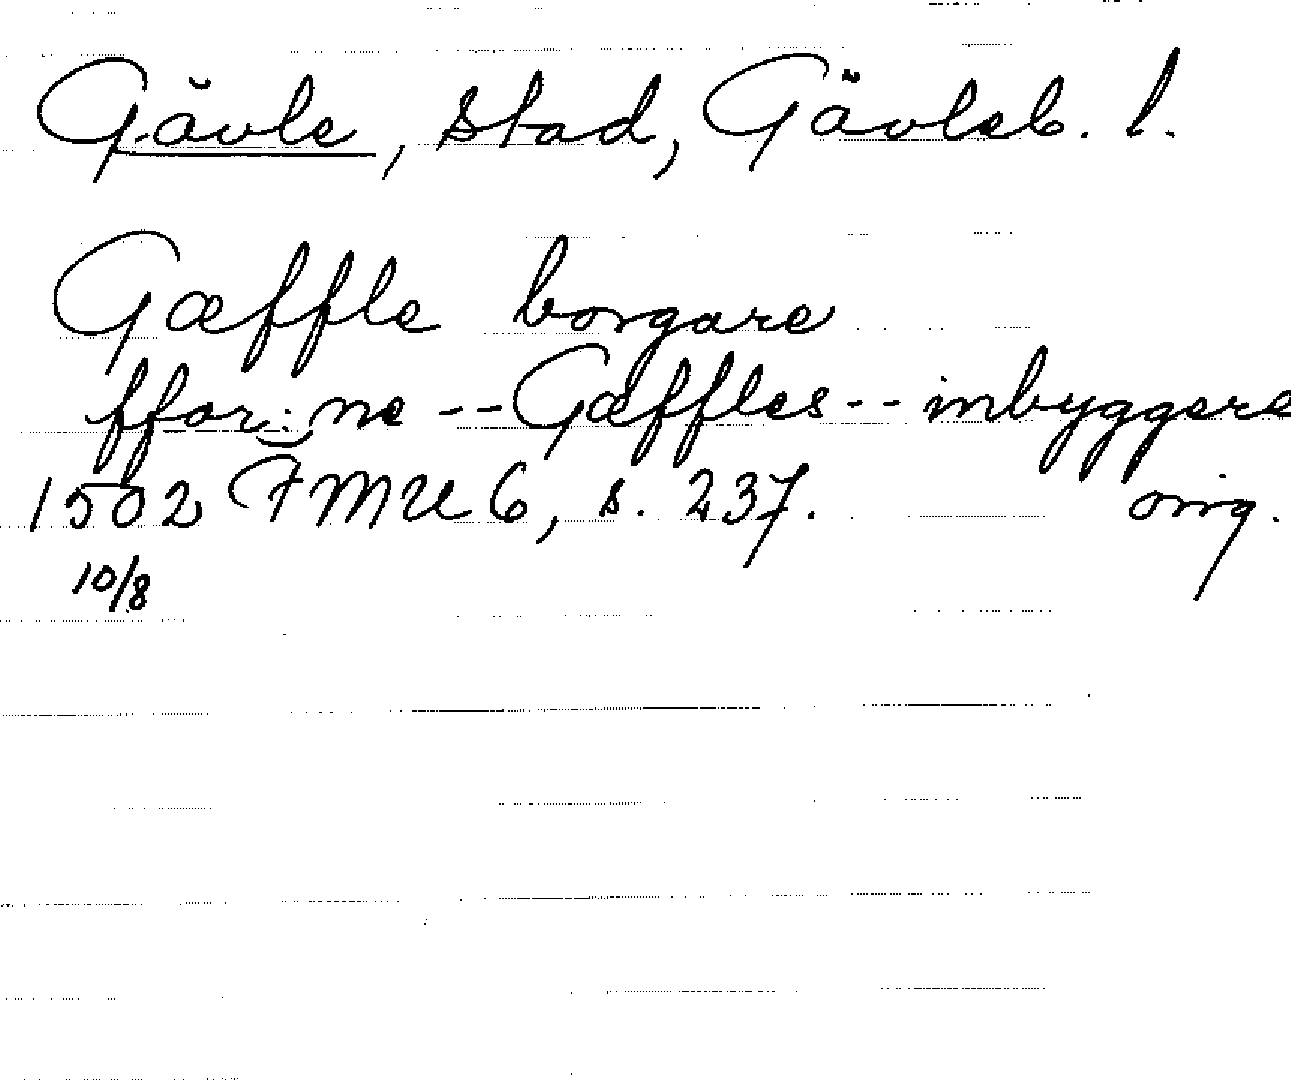 Gävle, stad, Gävleb. l.
Gæffle borgare
ffor:ne -- Gæffles -- inbyggere
1502 FMU 6, s. 237. orig.
10/8